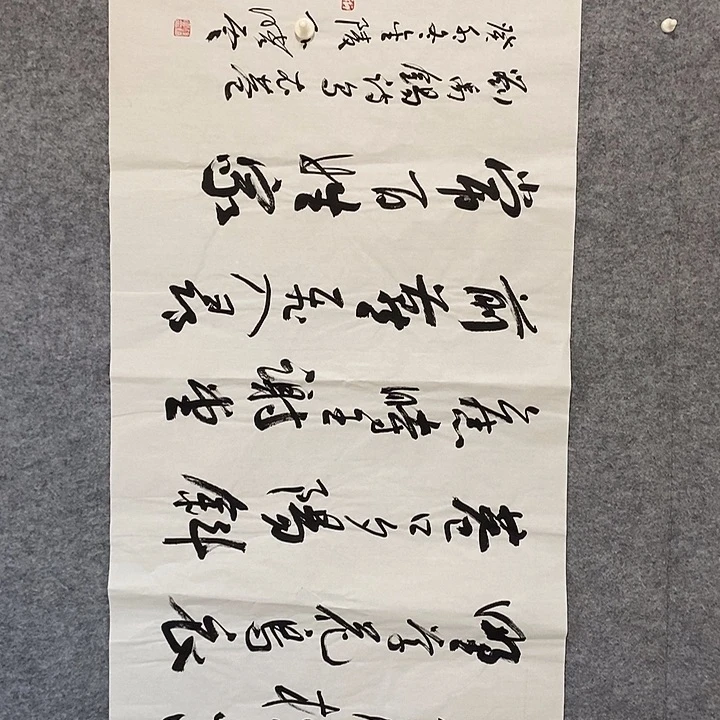 野草花烏衣
巷口夕陽斜
舊時王謝堂
前燕飛入尋
常百姓家
劉禹錫詩烏衣巷
癸卯金陵